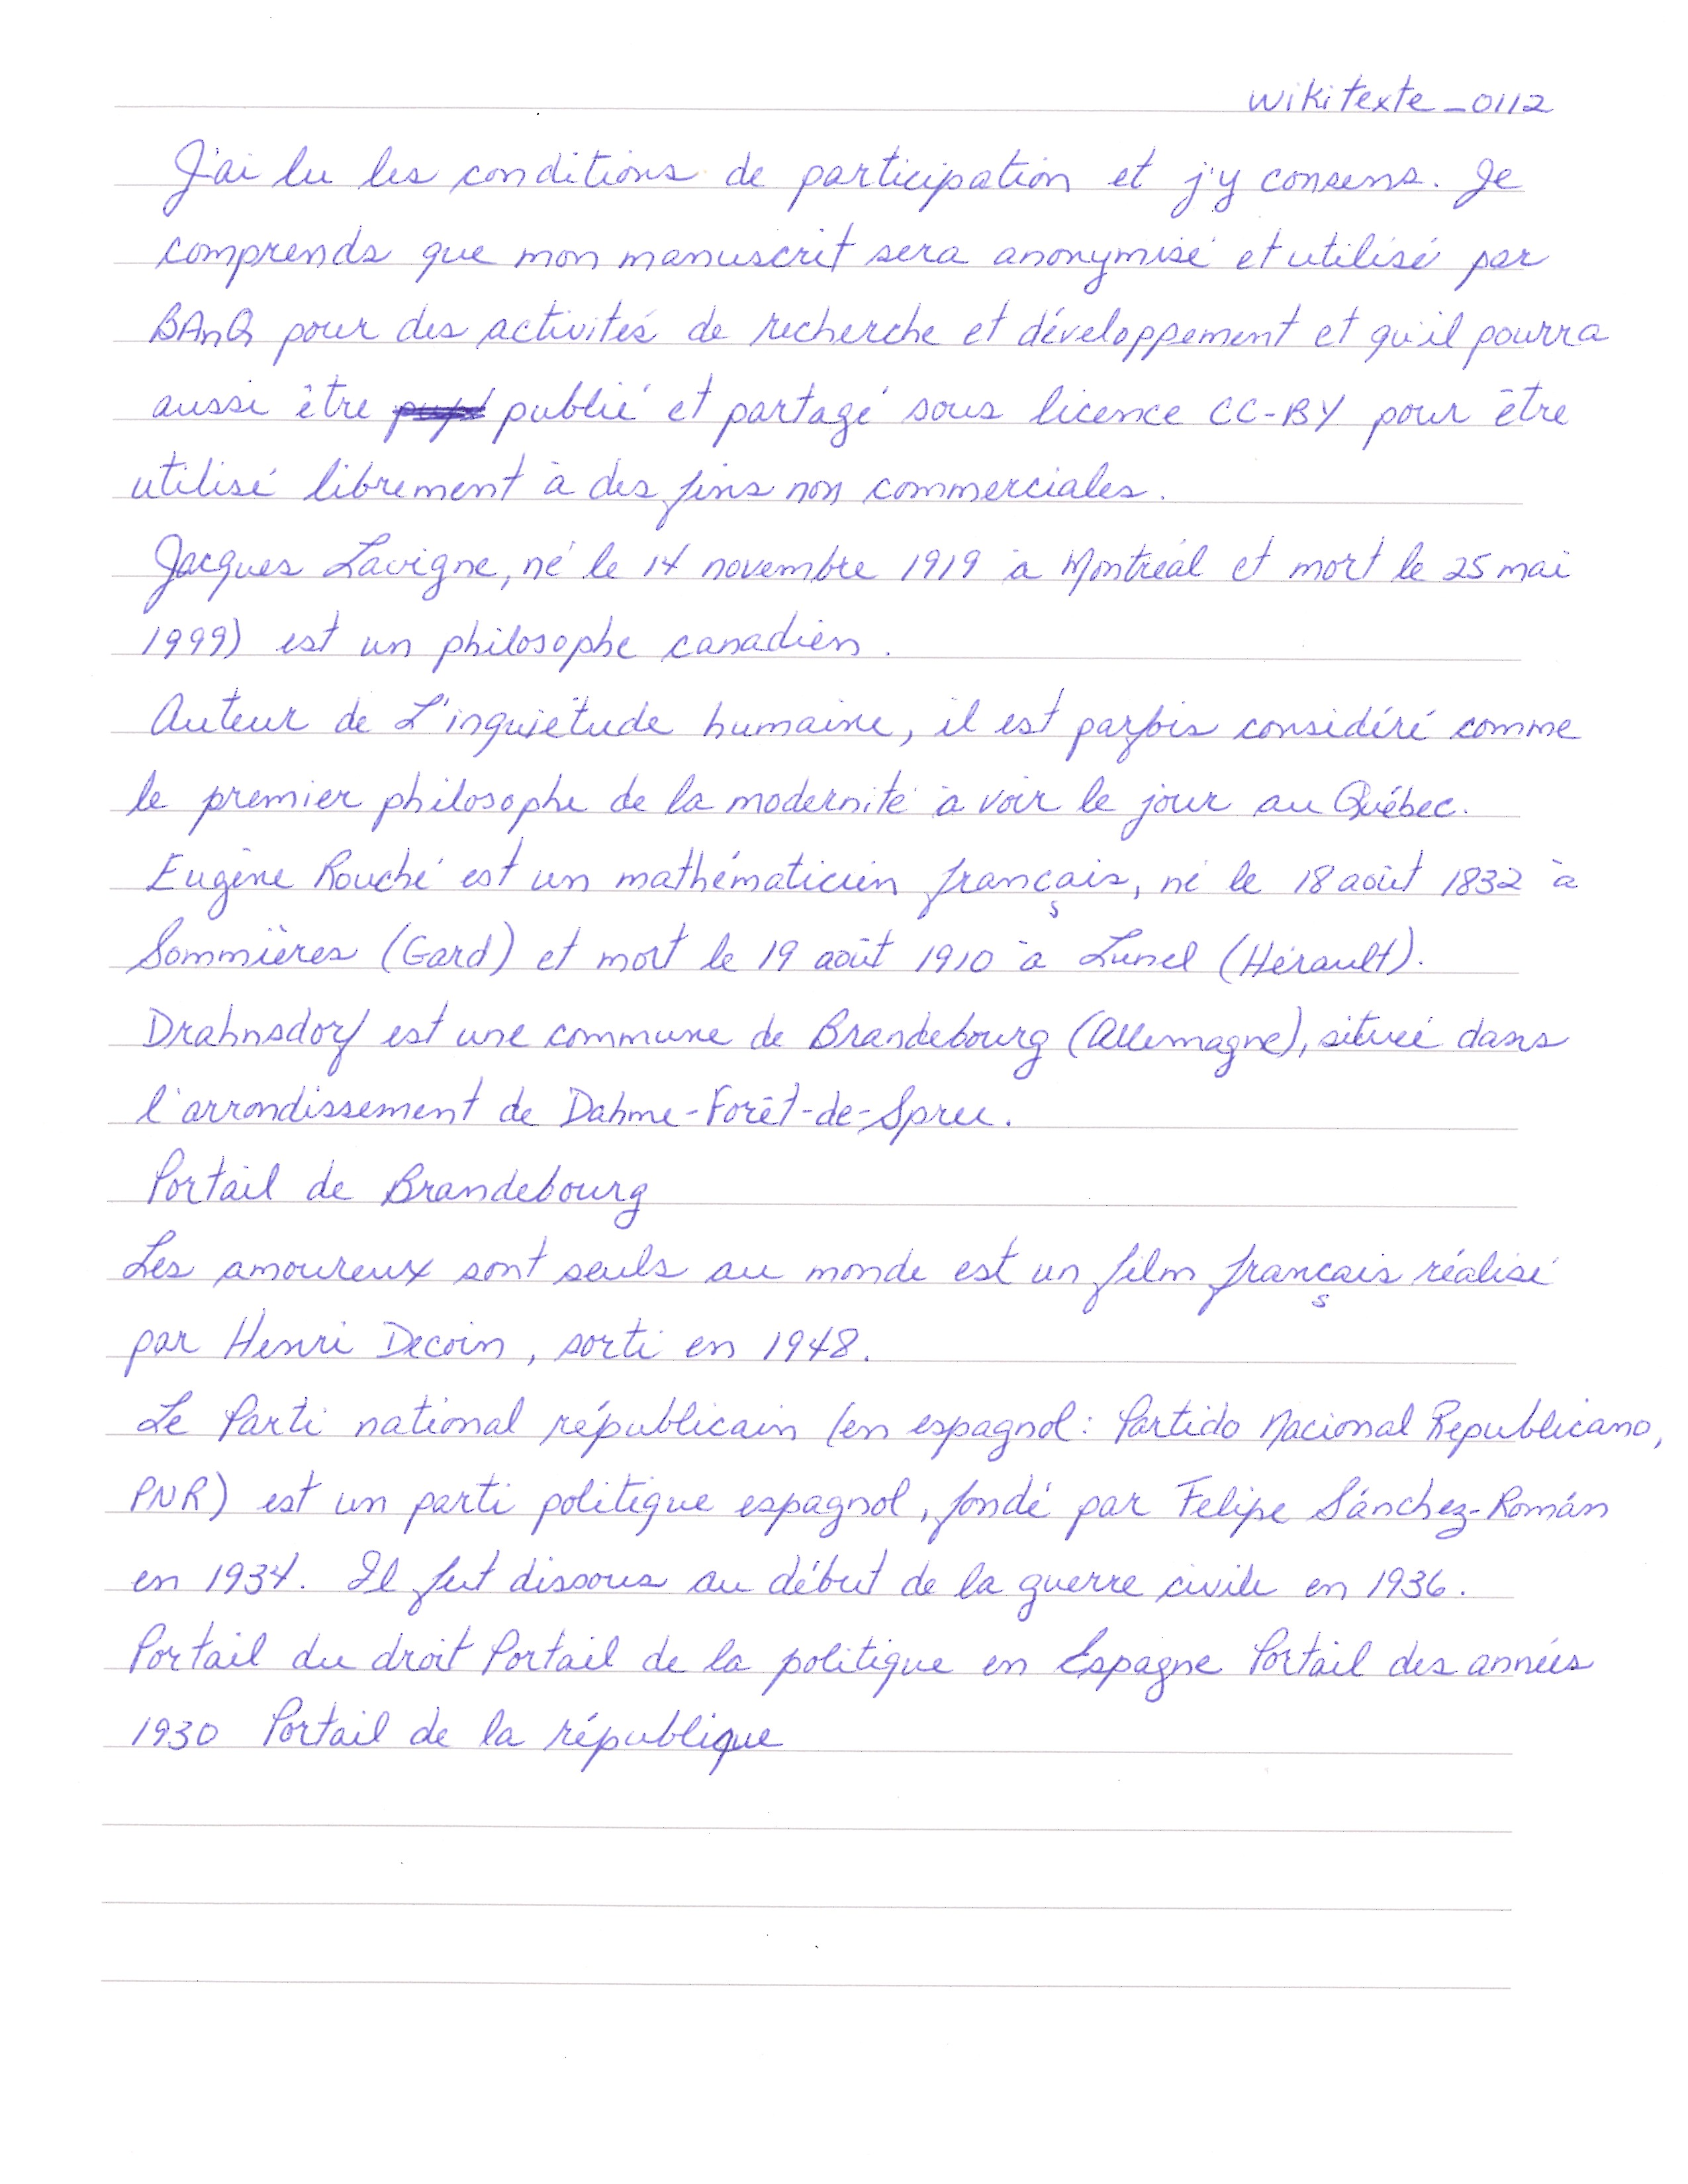 wikitexte_0112
J'ai lu les conditions de participation et j'y consens. Je
comprends que mon manuscrit sera anonymisé et utilisé par
BAnQ pour des activités de recherche et développement et qu'il pourra
aussi être publié et partagé sous licence CC-BY pour être
utilisé librement à des fins non commerciales.
Jacques Lavigne, né le 14 novembre 1919 à Montréal et mort le 25 mai
1999) est un philosophe canadien.
Auteur de L'inquiétude humaine, il est parfois considéré comme
le premier philosophe de la modernité à voir le jour au Québec.
Eugène Rouché est un mathématicien français, né le 18 août 1832 à
Sommières (Gard) et mort le 19 août 1910 à Lunel (Hérault).
Drahnsdorf est une commune de Brandebourg (Allemagne), située dans
l'arrondissement de Dahme-Forêt-de-Spree.
Portail de Brandebourg
Les amoureux sont seuls au monde est un film français réalisé
par Henri Decoin, sorti en 1948.
Le Parti national républicain (en espagnol : Partido Nacional Republicano,
PNR) est un parti politique espagnol, fondé par Felipe Sánchez-Román
en 1934. Il fut dissous au début de la guerre civile en 1936.
Portail du droit Portail de la politique en Espagne Portail des années
1930 Portail de la république